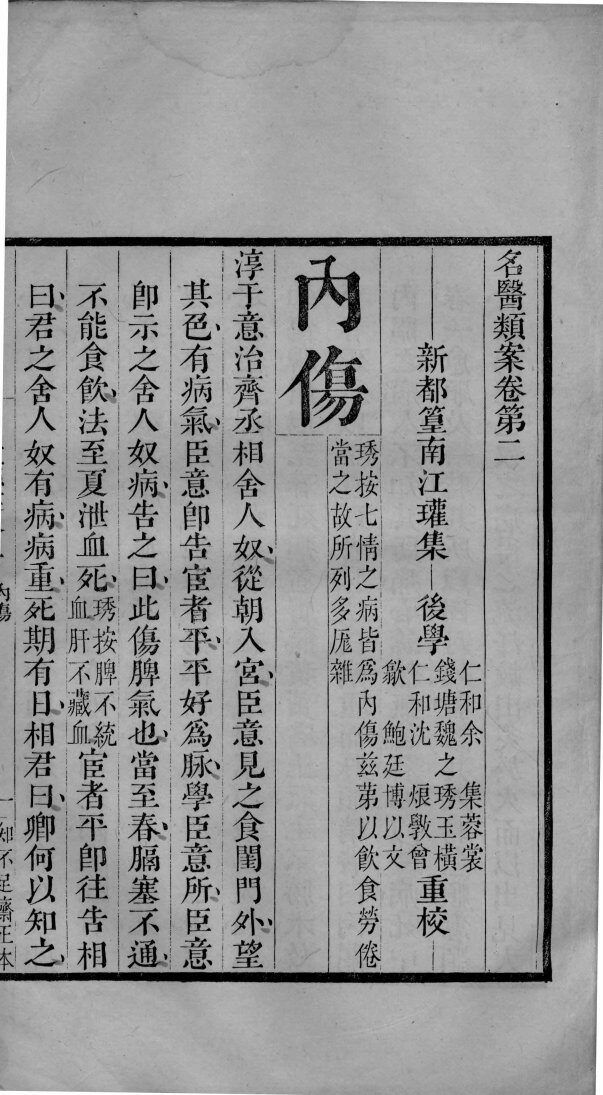 名醫類案卷第二
新都篁南江瓘集
後學
仁和余　集蓉裳
錢塘魏之琇玉橫
仁和沈　烺斅曾
歙　鮑廷博以文
重校
內傷
琇按七情之病皆爲內傷兹苐以飲食勞倦
當之故所列多厖雜
淳于意治齊丞相舍人奴從朝入宮臣意見之食閨門外望
其色有病氣臣意卽告宦者平平好爲脉學臣意所臣意
卽示之舍人奴病告之曰此傷脾氣也當至春膈塞不通
不能食飲法至夏泄血死琇按脾不統血肝不藏血宦者平卽往告相
曰君之舍人奴有病病重死期有日相君曰卿何以知之
內傷
一
知不足齋正本